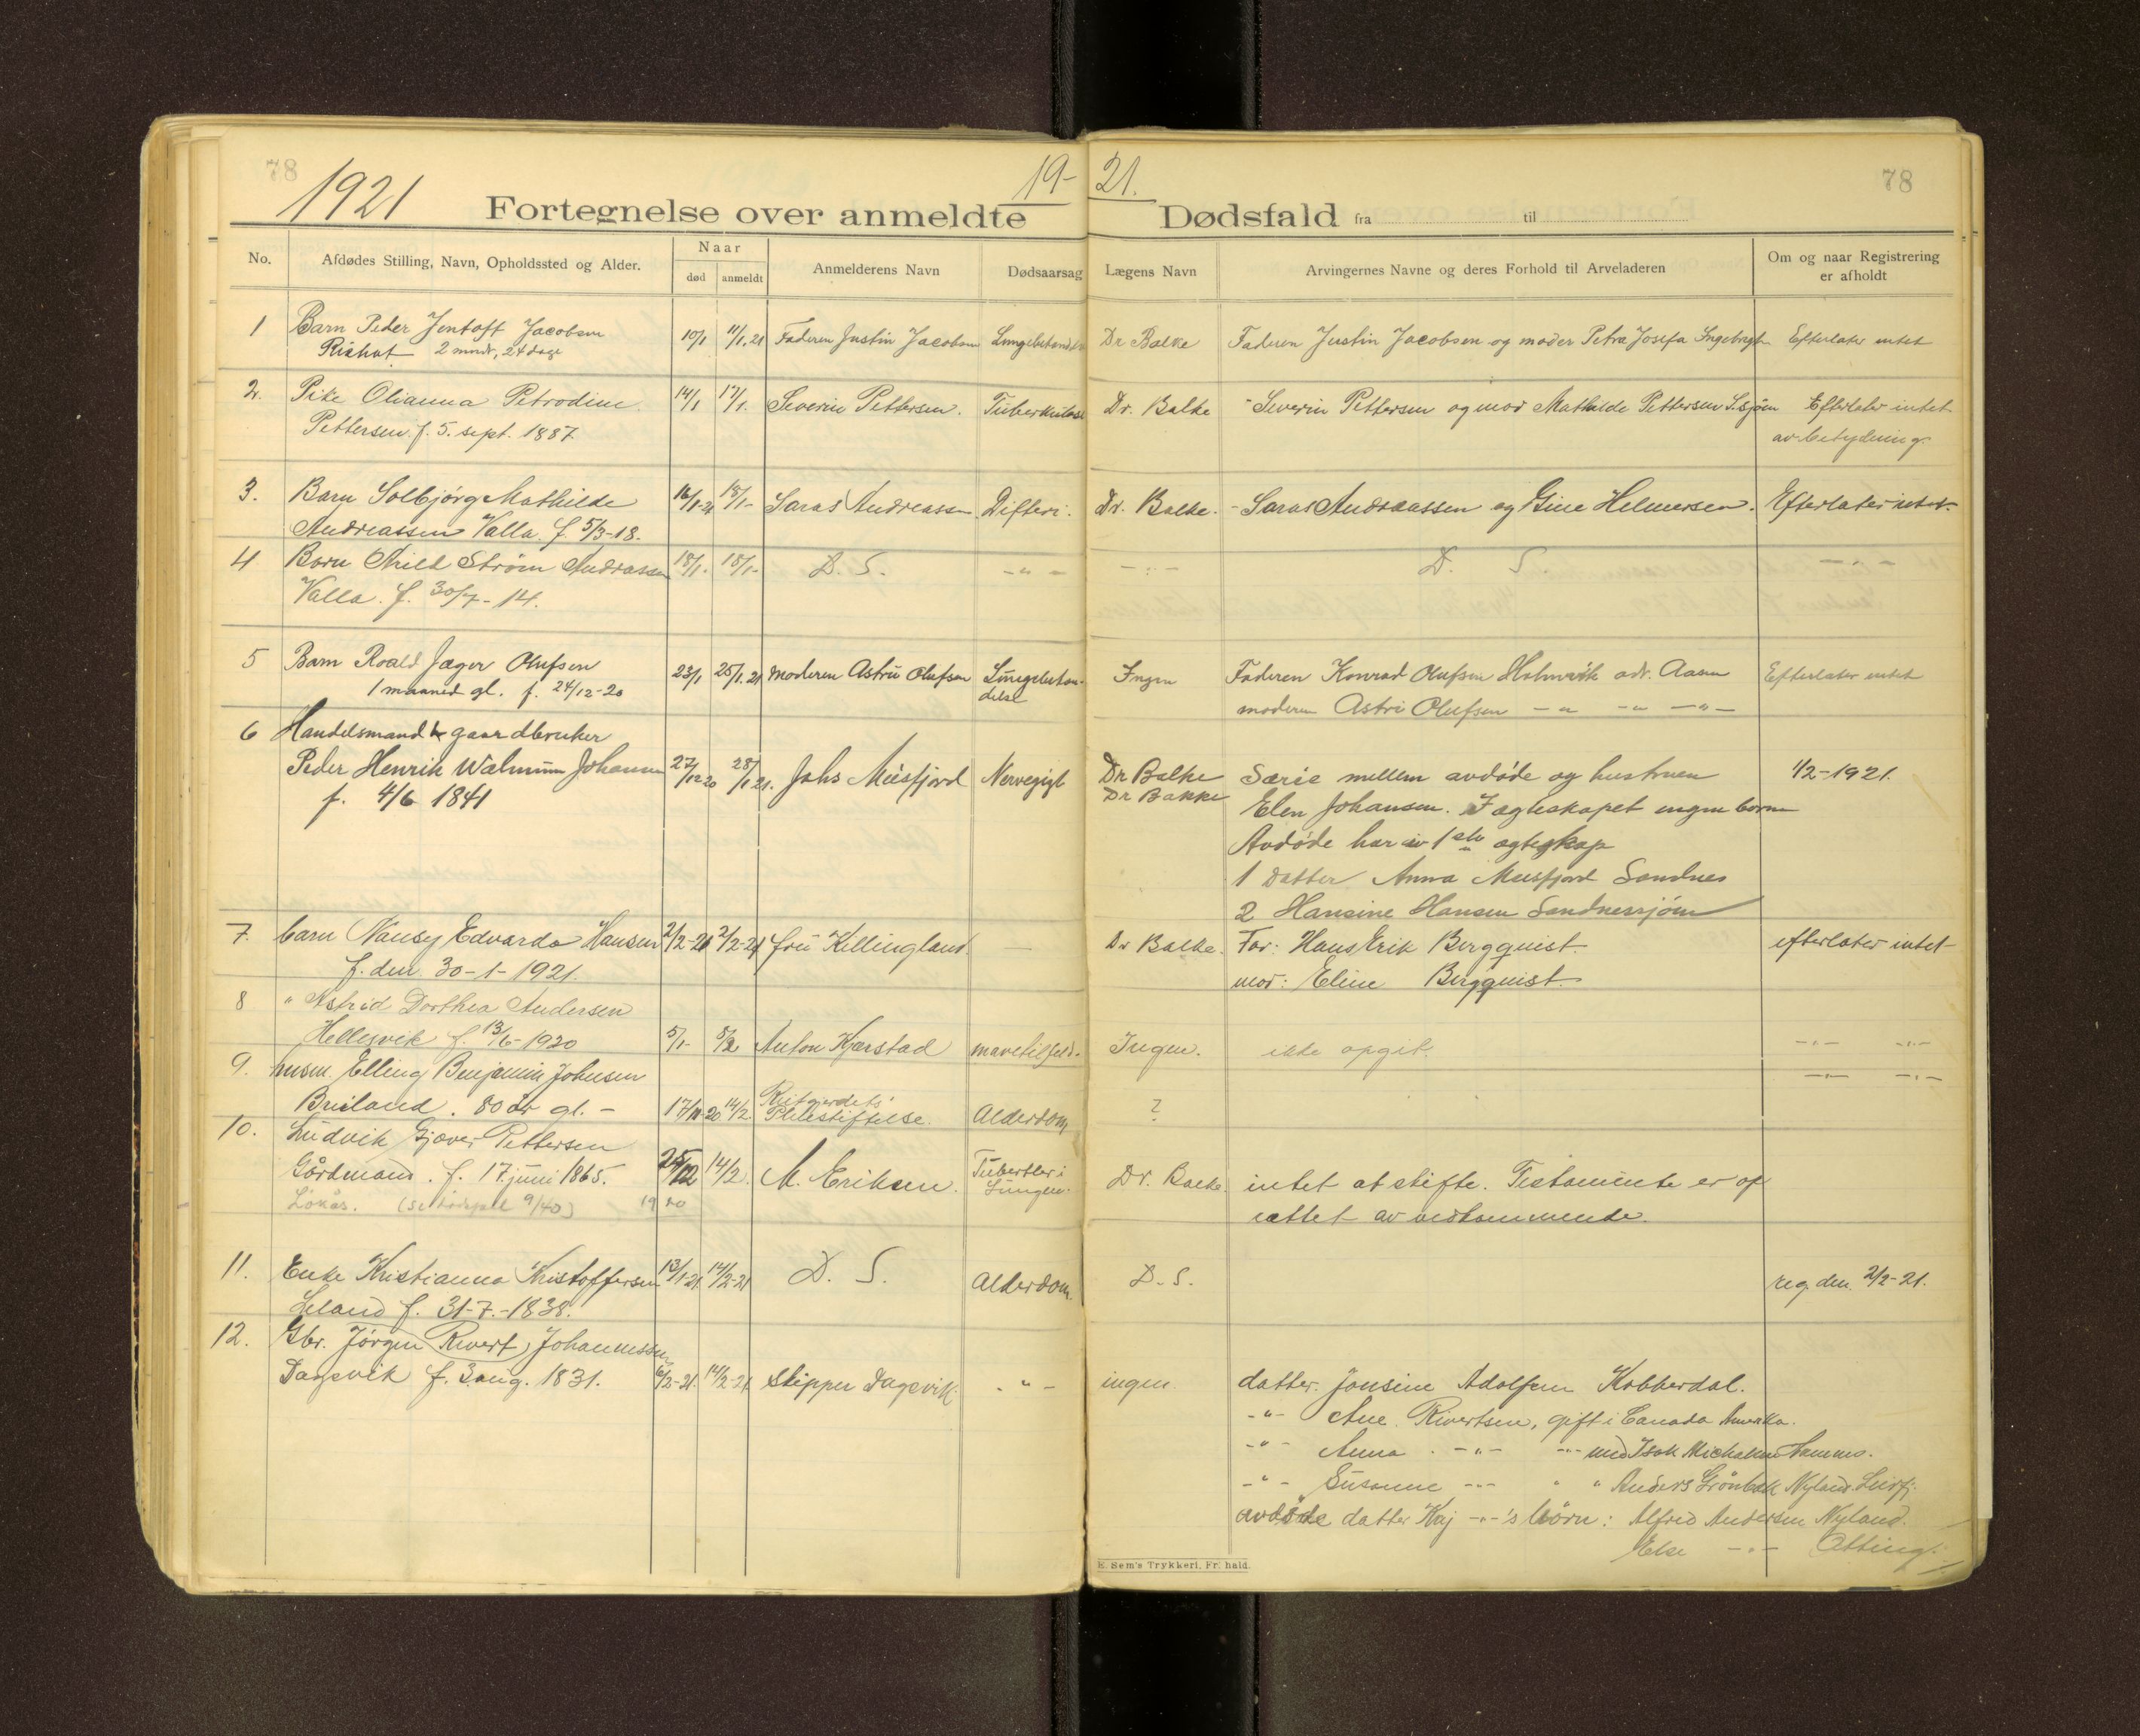 78
1921
19-
21.
78
Fortegnelse over anmeldte
Dødsfald fra til
No.
Afdødes Stilling, Navn, Opholdssted og Alder.
Naar
død
anmeldt
Anmelderens Navn
Dødsaarsag
Lægens Navn
Arvingernes Navne og deres Forhold til Arveladeren
Om og naar Registrering
er afholdt
1 Barn Peder Jentoft Jacobsen 10/1 11/1.21 Faderen Justin Jacobsen Dr Balke Faderen Justin Jacobsen og moder Petra Josefa Efterlater intet
2 mndr, 24 dage
2. Pike Olianna Petrodine 14/1 17/1. Severin Pettersen. Tuberkulose Dr. Balke Severin Pettersen og mor Mathilde Pettersen S.sjøen Efterlater intet
Pettersen. f. 5. sept. 1887. av betydning.
3. Barn Solbjørg Mathilde 16/1-21 18/1- Saras Andreassen Difteri. Dr. Balke. - Saras Andreassen og Gine Helmersen. Efterlater intet
Andreassen Valla. f. 5/3-18.
4 Barn Arild Strøm Andreassen 18/1. 18/1- D. S. -"- -"- D. S. -"-
Valla. f. 30/7-14.
5 Barn Roald Jæger Olufsen 23/1 25/1.21 Moderen Astri Olufsen Lungebeten- Ingen Faderen Konrad Olufsen Holmvik adr. Aasen Efterlater intet
1 maaned gl. f. 24/12-20 delse moderen Astri Olufsen -"- -"- -"-
6 Handelsmand & gaardbruker
Peder Henrik Walnum Johansen 27/12 20 28/1 21. Johs Meisfjord Dr Balke Særie mellem avdøde og hustruen 1/2-1921.
f. 4/6 1841 Dr Bakke Elen Johansen. I ægteskapet ingen børn
Avdøde har i 1ste ægteskap
1 Datter Anna Meisfjord Sandnes
2 Hansine Hansen Sandnessjøen
7. barn Nansy Edvarda Hansen 2/2-21 2/2-21 fru Killingland. - Dr Balke. Far: Hans Erik Bergquist. efterlater intet
f. den 30-1-1921. mor: Eline Bergquist.
8 " Astrid Dorthea Andersen
Hellesvik f. 13/6-1920 5/1- 5/2 Anton Kjærstad Ingen. ikke opgit. -"- -"-
9. Elling Benjamin Johnsen -"- -"-
Breiland. 80 år gl. - 17/11-20 14/2. Pleiestiftelse. Alderdom ?
10. Ludvik Gjæver Pettersen
Gårdmand. f. 17. juni 1865. 25/12 14/2. M. Eriksen. Tuberkler i Dr. Balke. intet at skifte. Testamente er op
1920 Lungen. rettet av vedkommende.
11. Enke Kristianna Kristoffersen 13/1-21 14/2-21 D. S. Alderdom. D. S. reg. den 2/2-21.
Leland f. 31-7.-1838.
12. Gbr. Jørgen Rivert Johannessen
Dagsvik f. 3. aug. 1831. 6/2-21. 14/2-21 skipper Dagsvik. -"- ingen datter. Jonsine Adolfsen Kobberdal.
-"- Ane Rivertsen, gift i Canada Amerika.
-"- Anna -"- -"- med Isak Michalsen
-"- Susanne -"- " " Anders Grønbek Nyland Leirfj.
avdøde datter Kaj -"-'s børn: Alfred Andersen Nyland.
Else -"-
E. Sem's Trykkeri, Fr. hald.